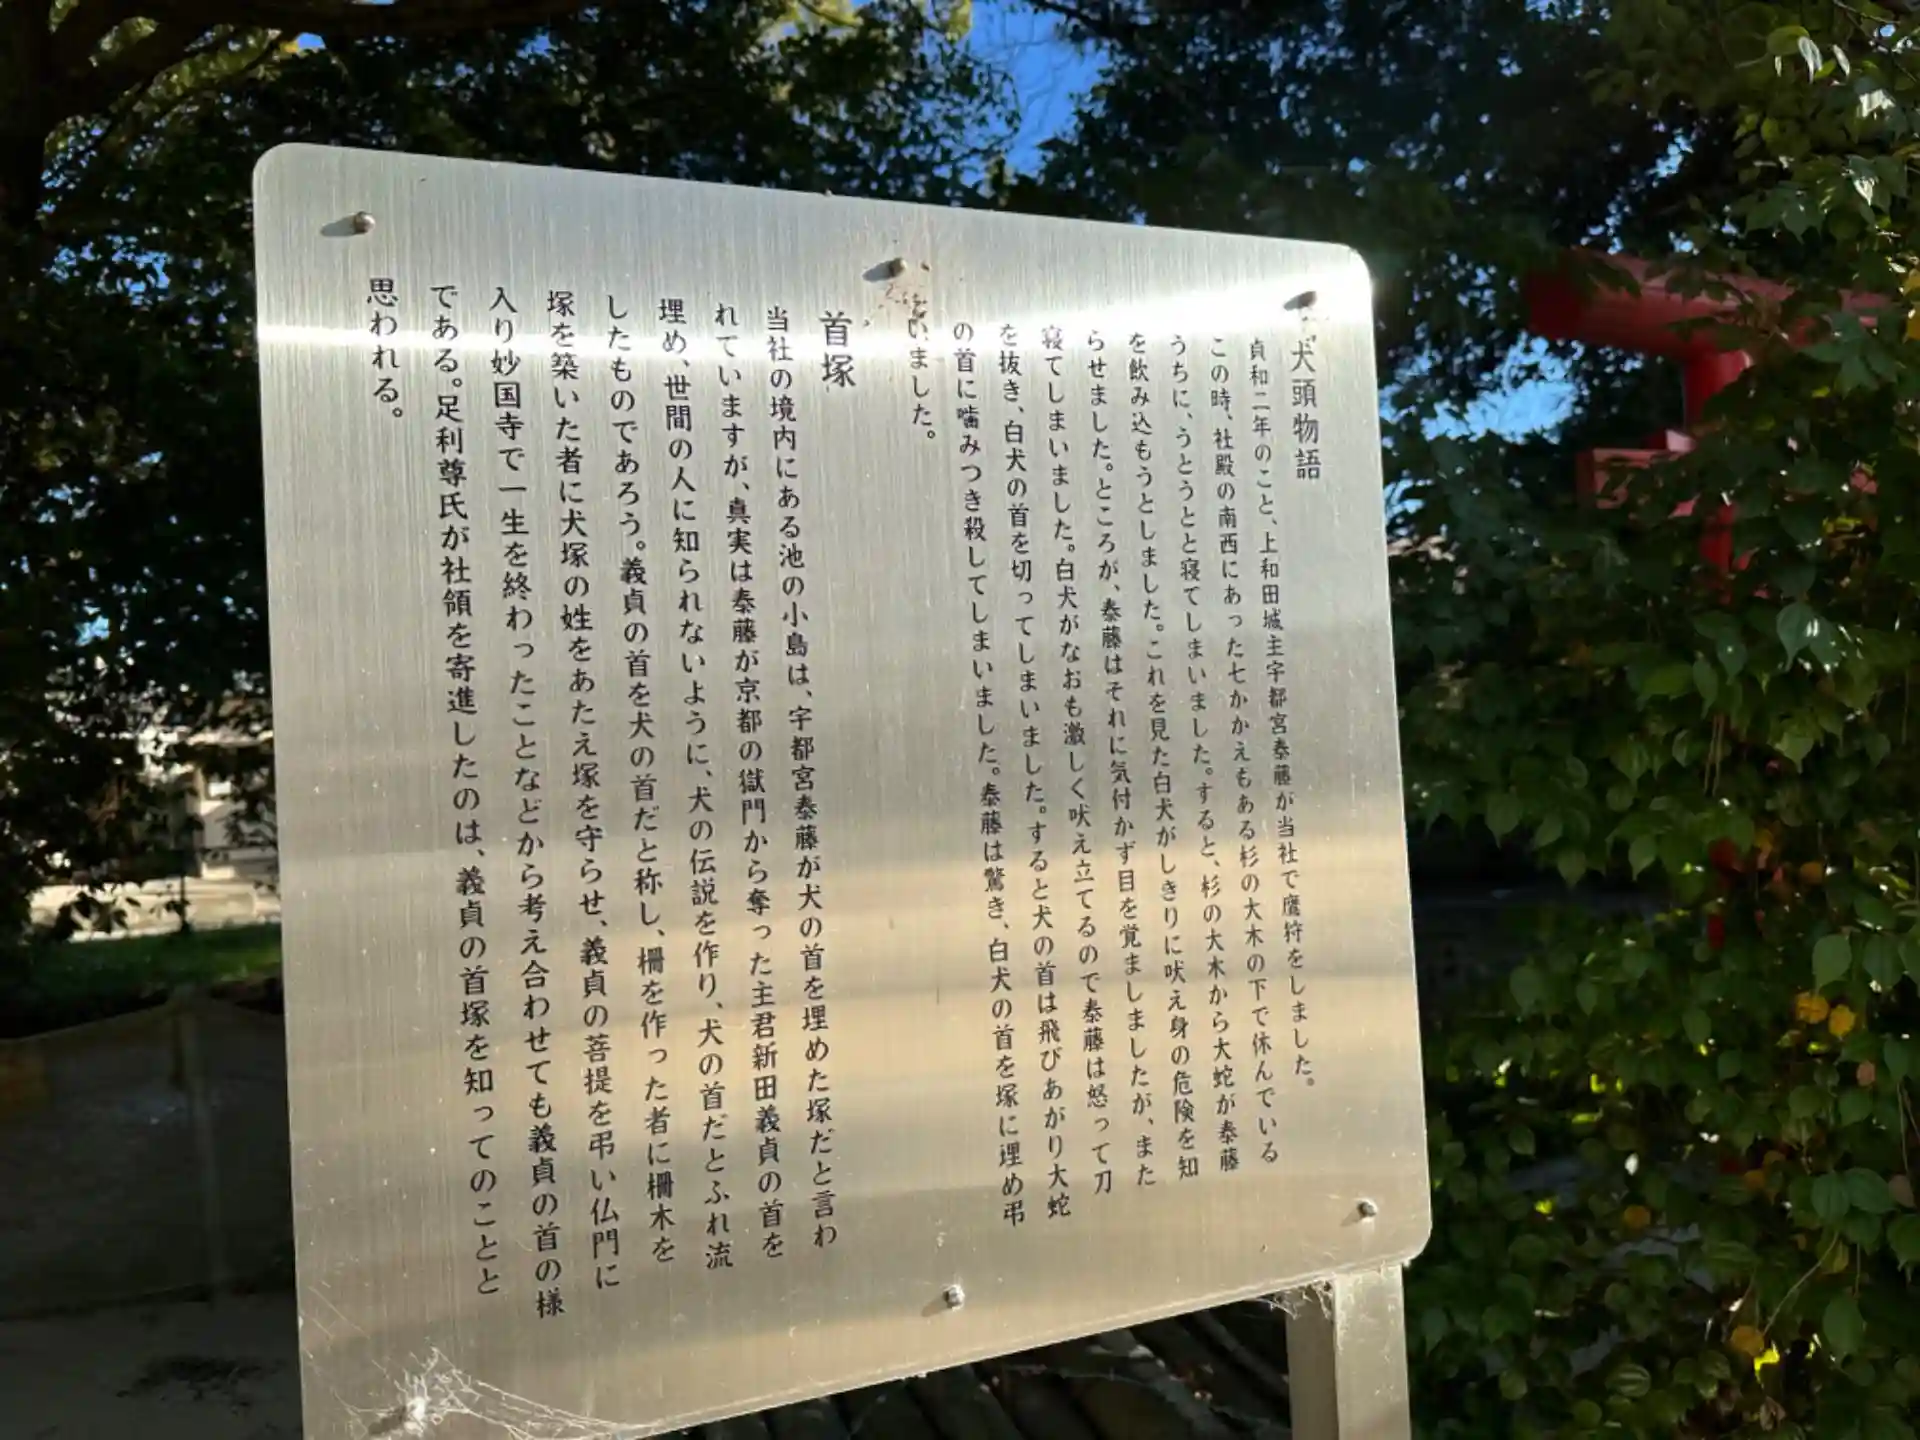 犬頭物語
貞和二年のこと、上和田城主宇都宮泰藤が当社で鷹狩をしました。
この時、社殿の南西にあった七かかえもある杉の大木の下で休んでいる
うちに、うとうとと寝てしまいました。すると、杉の大木から大蛇が泰藤
を飲み込もうとしました。これを見た白犬がしきりに吠え身の危険を知
らせました。ところが、泰藤はそれに気付かず目を覚ましましたが、また
寝てしまいました。白犬がなおも激しく吠え立てるので泰藤は怒って刀
を抜き、白犬の首を切ってしまいました。すると犬の首は飛びあがり大蛇
の首に噛みつき殺してしまいました。泰藤は驚き、白犬の首を塚に埋め弔
いました。
首塚
当社の境内にある池の小島は、宇都宮泰藤が犬の首を埋めた塚だと言わ
れていますが、真実は泰藤が京都の獄門から奪った主君新田義貞の首を
埋め、世間の人に知られないように、犬の伝説を作り、犬の首だとふれ流
したものであろう。義貞の首を犬の首だと称し、柵を作った者に柵木を
塚を築いた者に犬塚の姓をあたえ塚を守らせ、義貞の菩提を弔い仏門に
入り妙国寺で一生を終わったことなどから考え合わせても義貞の首の様
である。足利尊氏が社領を寄進したのは、義貞の首塚を知ってのことと
思われる。